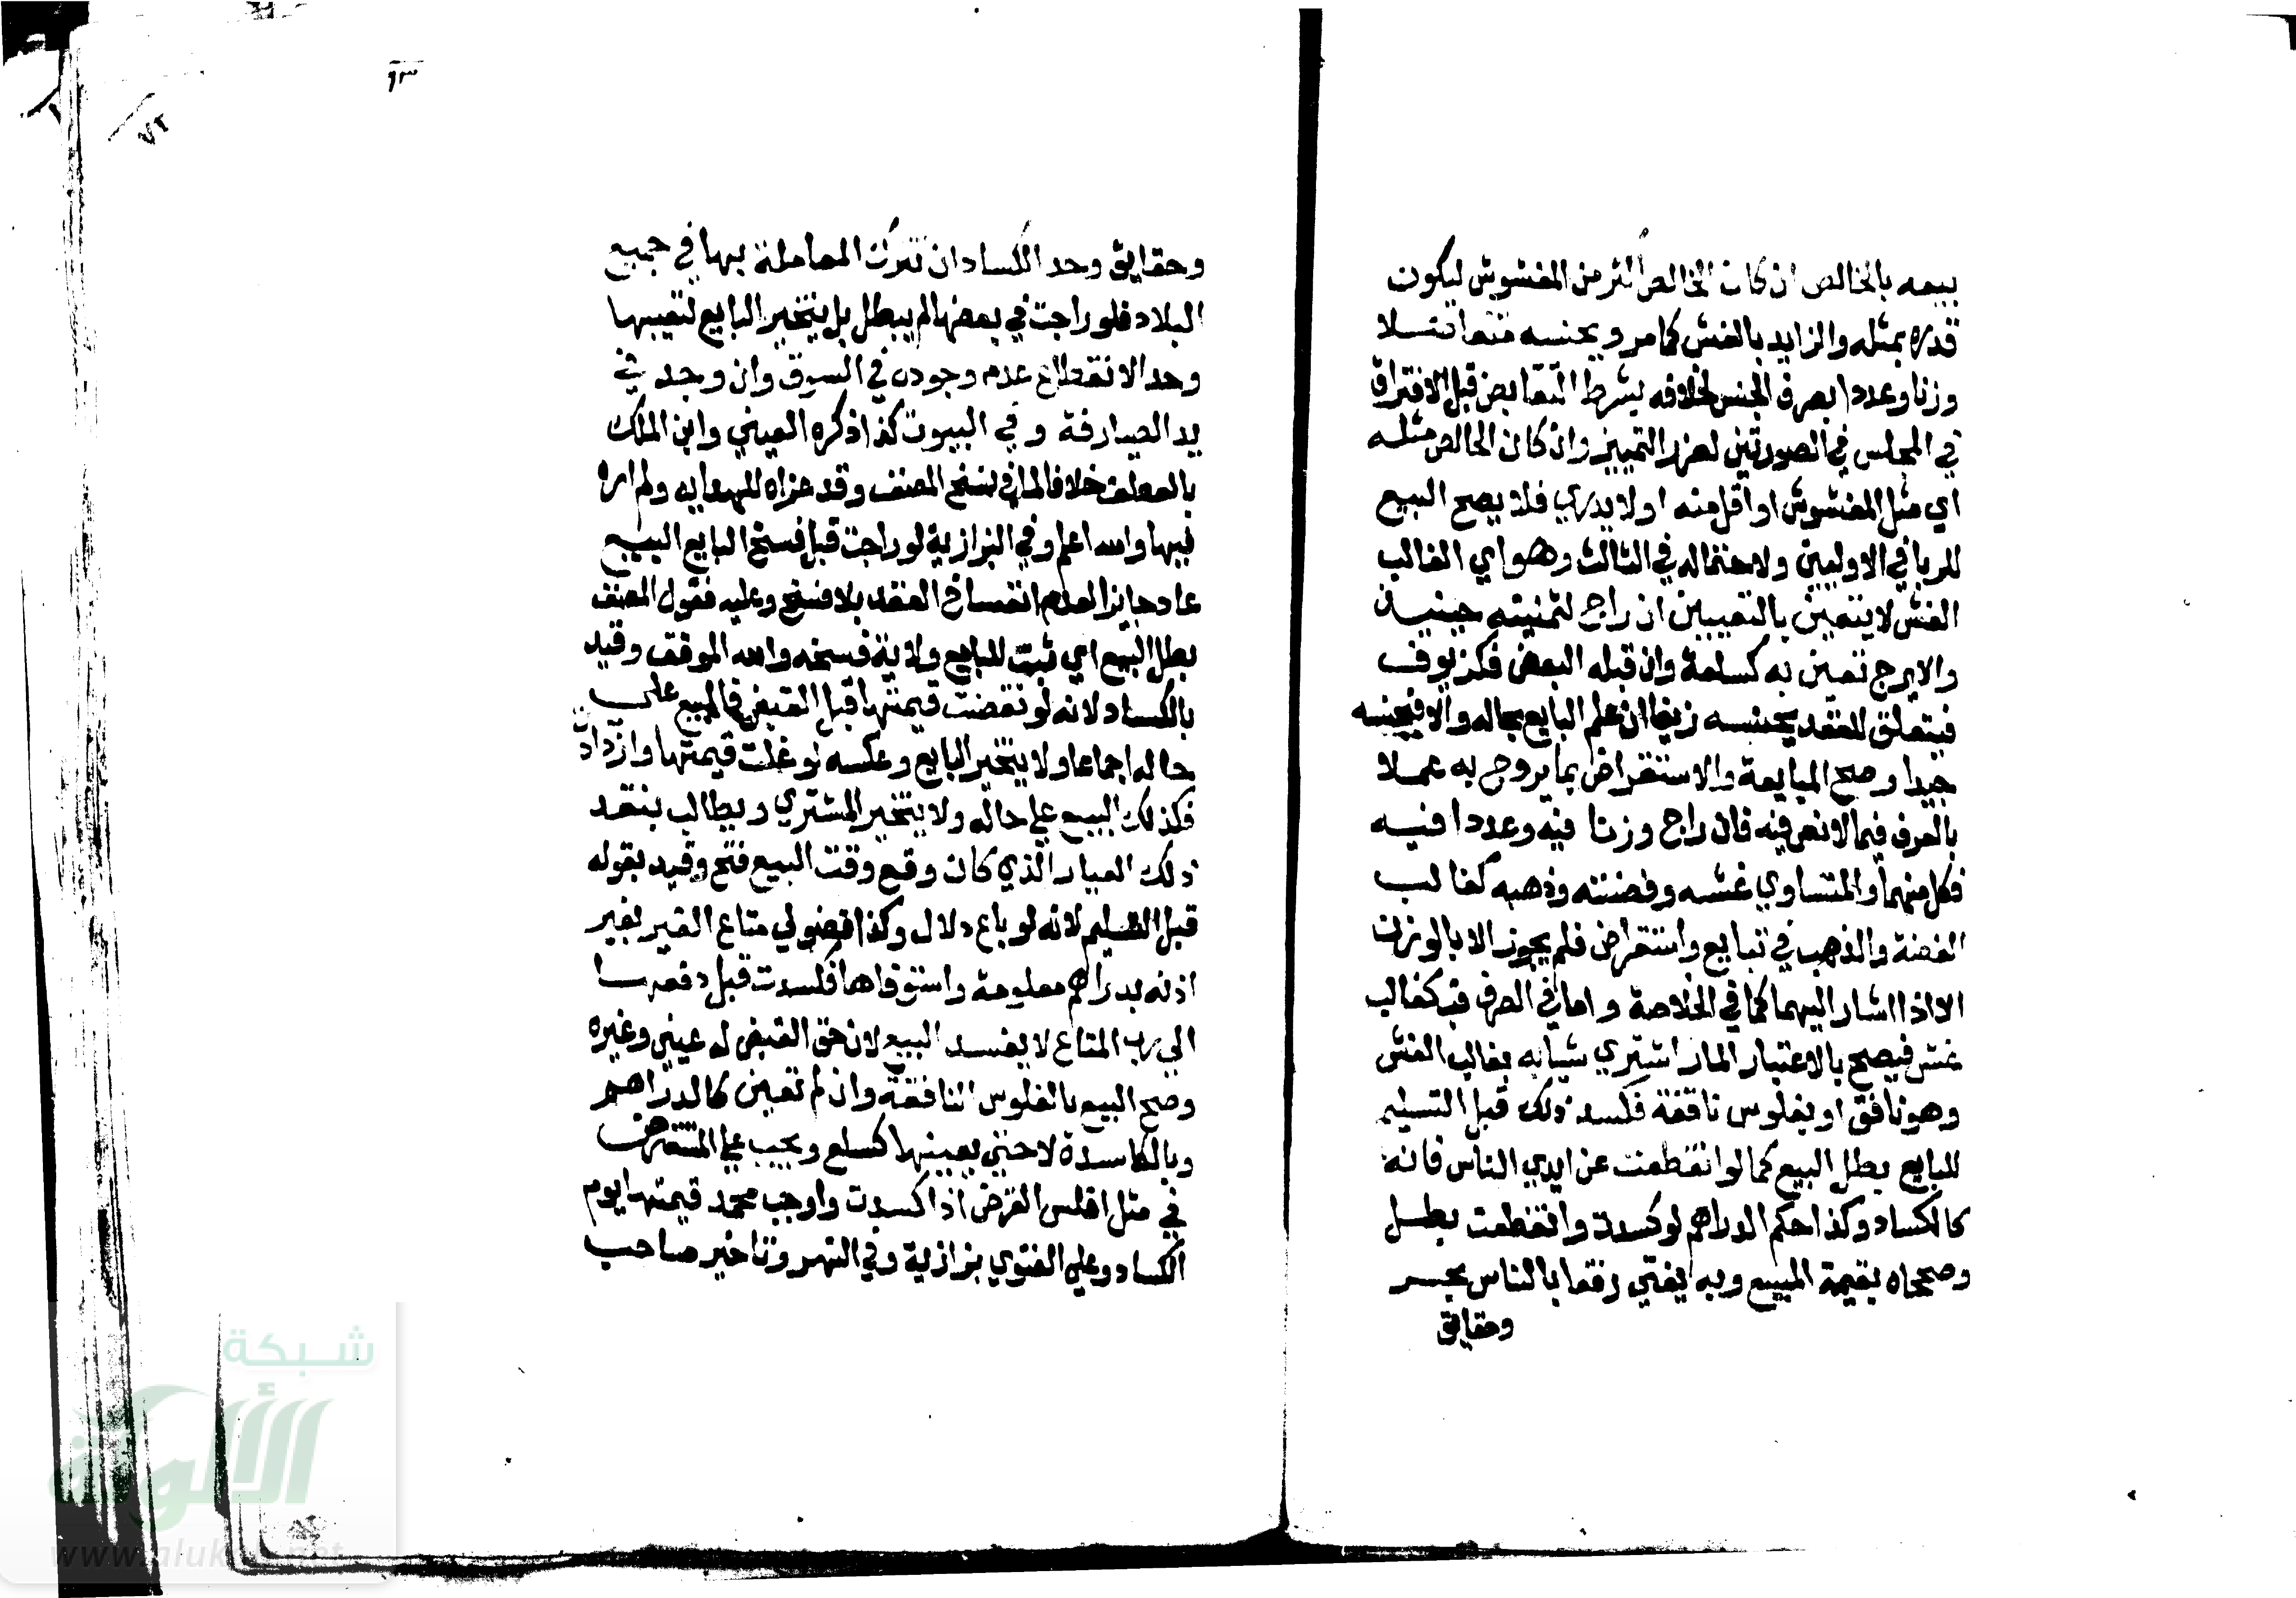 بيعه بالخالص ان كان الخالص اكثر من المغشوش ليكون
قدره بمثله والزايد بالغش كما مر وبجنسه متفاضلا
وزنا وعددا بصرف الجنس لخلافه بشرط التقابض قبل الافتراق
في المجلس في الصورتين لضرر التمييز وان كان الخالص مثله
اي مثل المغشوش او اقل منه او لا يدري فلا يصح البيع
للربا في الاوليين ولاحتماله في الثالث وهو اي الغالب
الغش لا يتعين بالتعيين ان راج لثمنيته حينيذ
والا يرج تعين به كسلعة وان قبله البعض فكزيوف
فيتعلق العقد بجنسه زيفا ان علم البايع بحاله والا فبجنسه
جيدا وصح المبايعة والاستقراض بما يروج به عملا
بالعرف فيما لا نص فيه فان راج وزنا فبه وعددا فبه
فكل منهما والمتساوي غشه وفضته وذهبه كغالب
الفضة والذهب في تبايع واستقراض فلم يجوز الا بالوزن
الا اذا اشار اليهما كما في الخلاصة واما في الصرف فكغالب
غش فيصح بالاعتبار المار اشتري شيا به بغالب الغش
وهو نافق او بفلوس نافقة فكسد ذلك قبل التسليم
للبايع بطل البيع كما لو انقطعت عن ايدي الناس فانه
كالكساد وكذا حكم الدراهم لو كسدت وانقطعت بطل
وصححاه بقيمة المبيع وبه يفتي رفقا بالناس بحر
وحقايق
٩٣
٧٢
وحقايق وحد الكساد ان تترك المعاملة بها في جميع
البلاد فلو راجت في بعضها لم يبطل بل يتخير البايع لتعيبها
وحد الانقطاع عدم وجوده في السوق وان وجد في
يد الصيارفة و في البيوت كذا ذكره العيني وابن الملك
بالعطف خلافا لما في نسخ المصنف وقد عزاه للهداية ولم اره
فيها والله اعلم وفي البزازية لو راجت قبل فسخ البايع البيع
عاد جايزا لعدم انفساخ العقد بلا فسخ وعليه فقول المصنف
بطل البيع اي ثبت للبايع ولاية فسخه والله الموفق وقيد
بالكساد لانه لو نقضت قيمتها قبل القبض فالمبيع علي
حاله اجماعا ولا يتخير البايع وعكسه لو غلت قيمتها وازدادت
فكذلك البيع علي حاله ولا يتخير المشتري ويطالب بنقد
ذلك العيار الذي كان وقع وقت البيع فتح وقيد بقوله
قبل التسليم لانه لو باع دلال وكذا فضولي متاع الغير بغير
اذنه بدراهم معلومة واستوفاها فكسدت قبل دفعها
الي رب المتاع لا يفسد البيع لان حق القبض له عيني وغيره
وصح البيع بالفلوس النافقة وان لم تعين كالدراهم
وبالكاسدة لا حتي يعينها كسلع ويجب علي المستقرض
في مثل افلس القرض اذا كسدت واوجب محمد قيمتها يوم
الكساد وعليه الفتوي بزازية وفي النهر وتاخير صاحب
شبكة
الألوكة
www.alukah.net